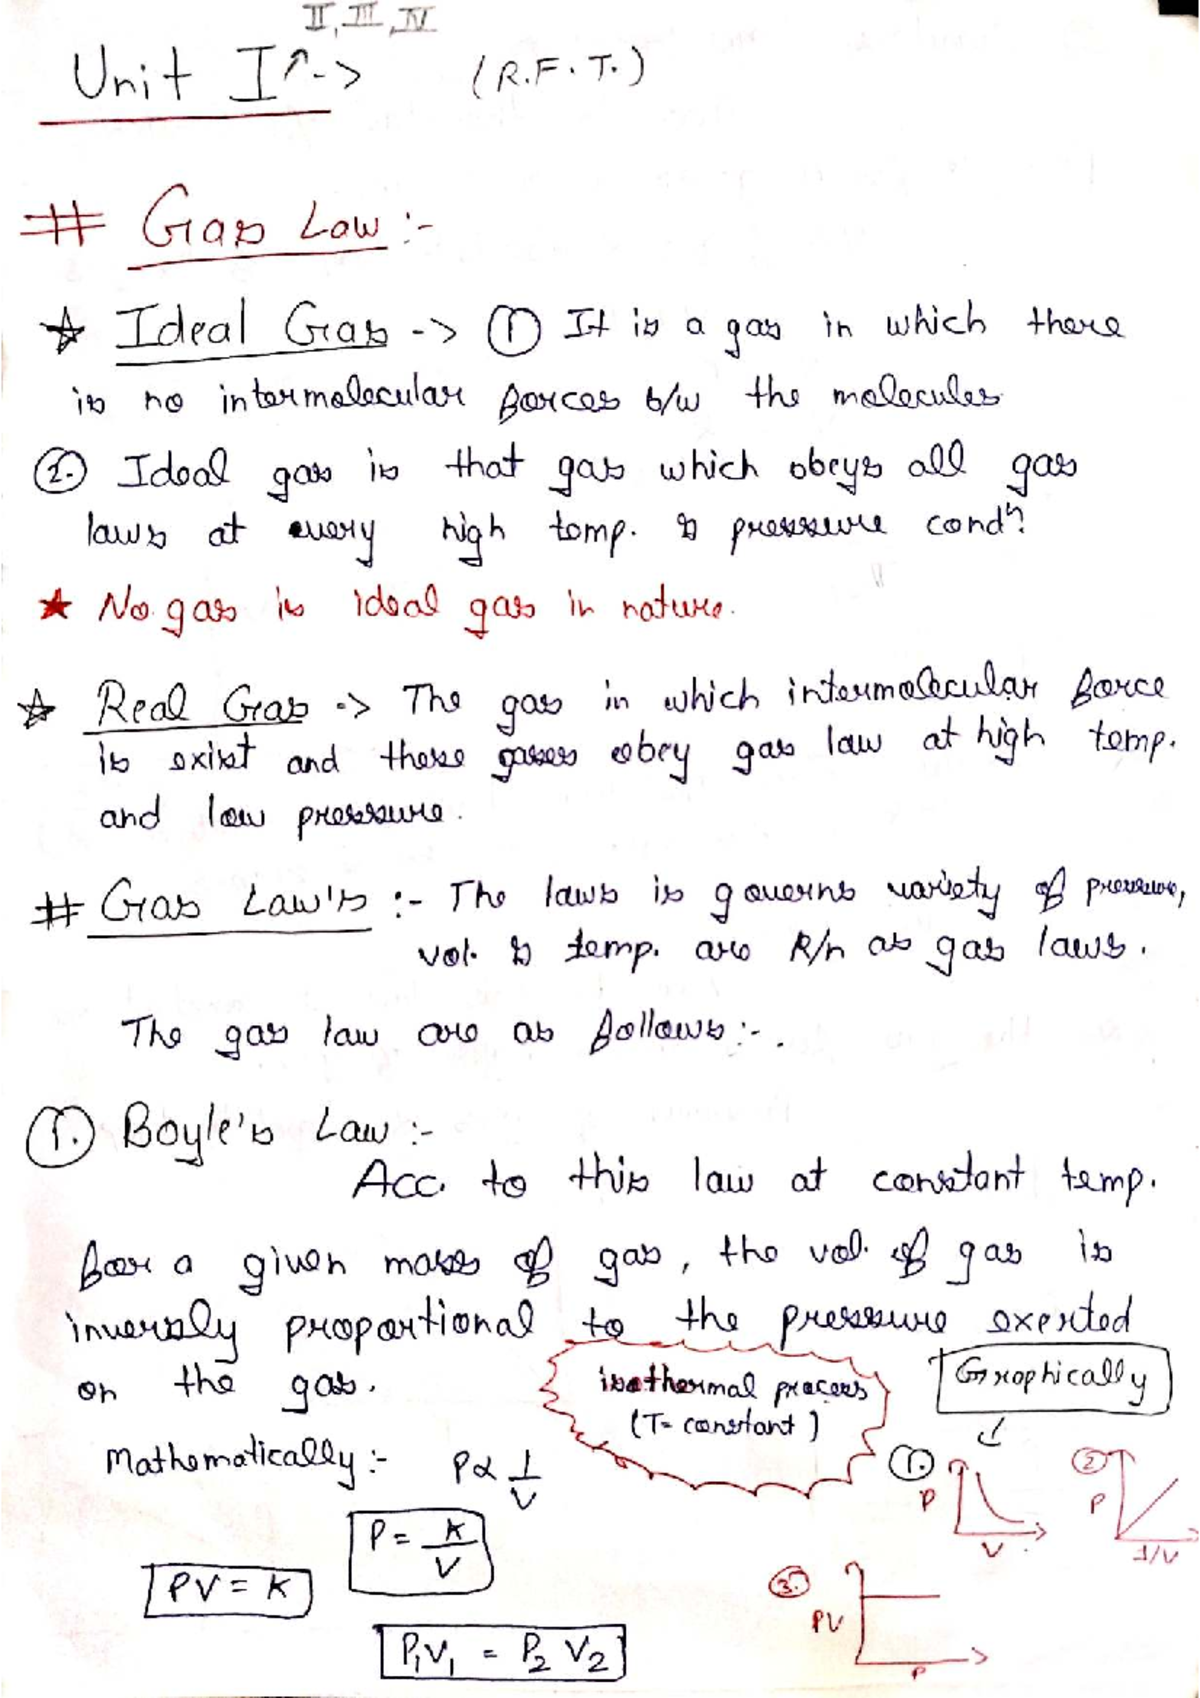 II, III, IV
Unit I -> (R.F.T.)
# Gas Law :-
Ideal Gas -> ① It is a gas in which there
is no intermolecular forces b/w the molecules
②. Ideal gas is that gas which obeys all gas
laws at every high temp. & pressure condⁿ.
★ No gas is ideal gas in nature.
☆ Real Gas -> The gas in which intermolecular force
is exist and these gases obey gas law at high temp.
and low pressure.
# Gas Law's :- The laws is governs variety of pressure,
vol. & temp. are K/n as gas laws.
The gas law are as follows :-.
①. Boyle's Law :-
Acc. to this law at constant temp.
for a given mass of gas, the vol. of gas is
inversly proportional to the pressure exerted
on the gas.
isothermal process
(T= constant)
Graphically
Mathematically :- P∝ 1/V
P = K/V
PV = K
P₁V₁ = P₂V₂
①.
P
V
②
P
1/V
③.
PV
P